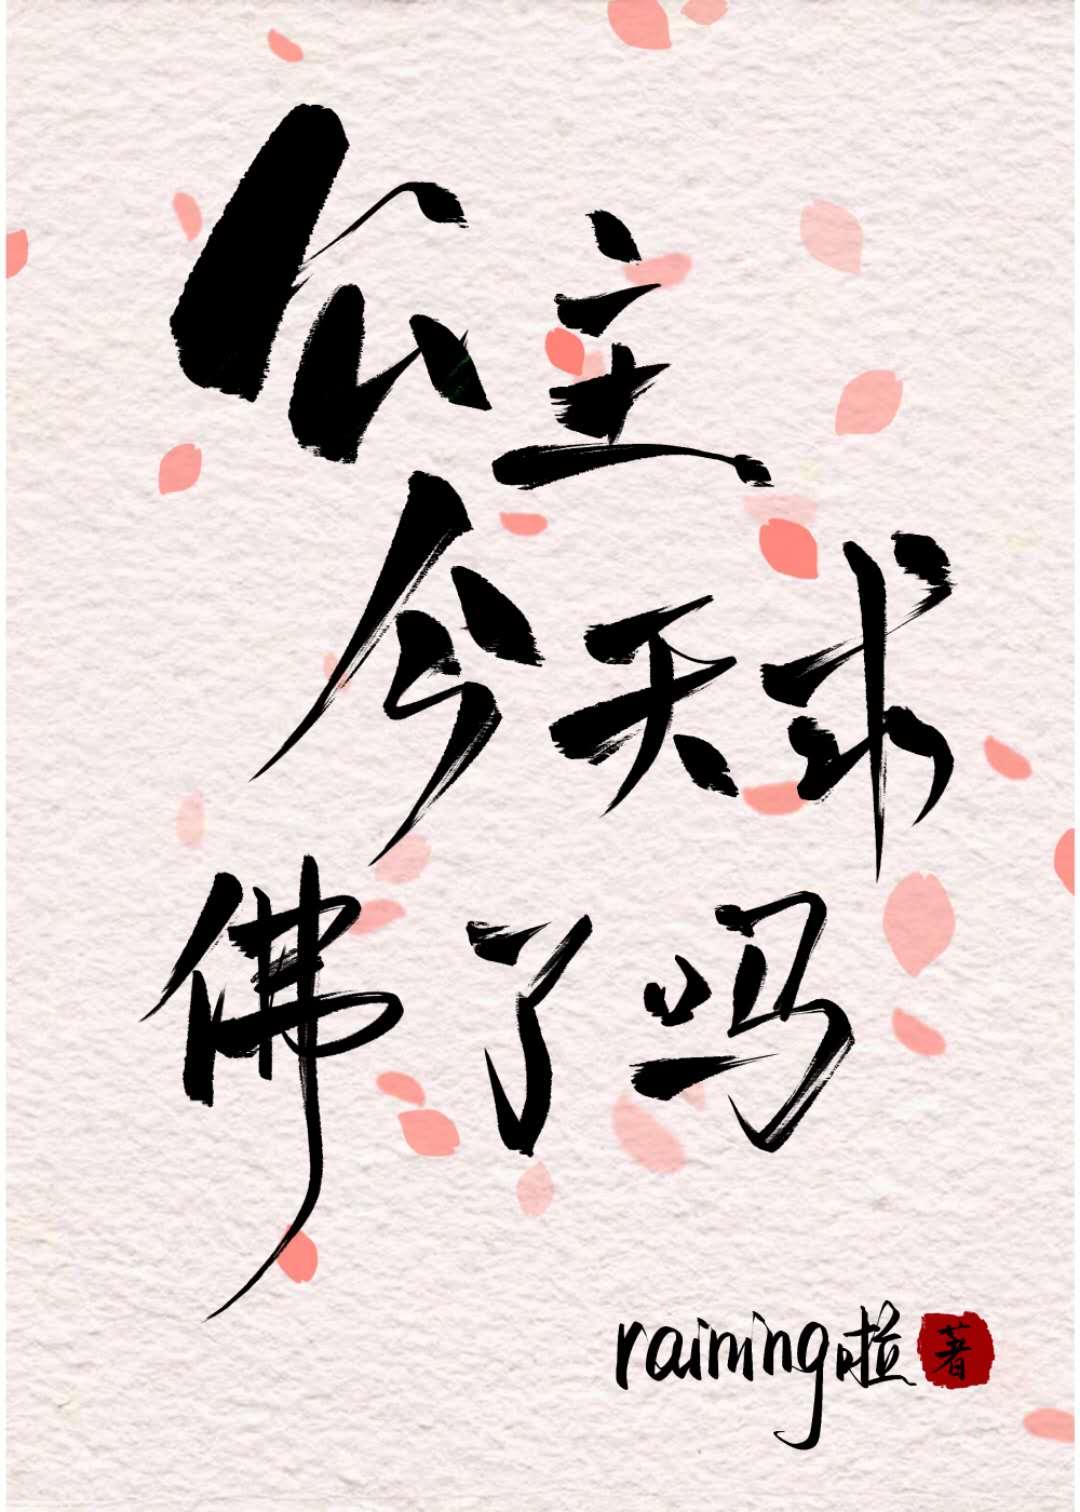 公主
今天求
佛了吗
raining啦 著